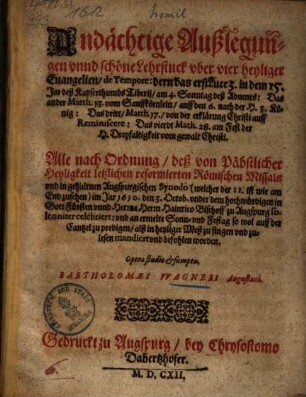 1612
homil
Andächtige Außlegun⸗
gen vnnd schöne Lehrstuck vber vier heyliger
Euangelien / de Tempore: deren das erst Luc. 3. in dem 15.
Jar deß Kayserthumbs Tiberij / am 4. Sonntag deß Aduents: Das
ander Matth. 13. vom Senffkörnlein / auff den 6. nach der H. 3. Kü⸗
nig: Das drit / Matth. 17. / von der erklärung Christi auff
Reminiscere: Das vierdt Matth. 28. am Fest der
H. Dreyfaltigkeit von gewalt Christi.
Alle nach Ordnung / deß von Päbstlicher
Heyligkeit letzlichen reformierten Römischen Missals
vnd in gehaltnem Augspurgischen Synodo (welcher hie zu ist wie am
End zusehen) im Jar 1610. den 3. Octob. vnder dem hochwürdigen in
Gott Fürsten vnnd Herrn Herrn Hainrico Bischoff zu Augspurg so⸗
lenniter celebriert: vnd an ernelte Sonn vnd Festag so wol auff der
Cantzel zu predigen / alß in heyliger Meß zu singen vnd zu⸗
lesen mandiert vnd befohlen worden.
Opera studio & sumptu,
BARTHOLOMÆI WAGNERI Augustani.
Gedruckt zu Augspurg / bey Chrysostomo
Dabertzhofer.
M. D. CXII.